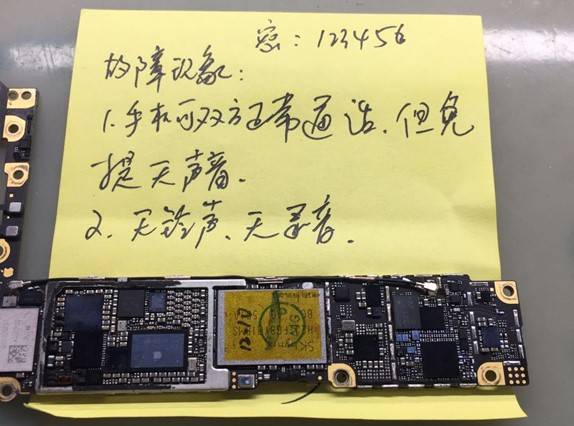 密：123456
故障现象：
1.手机可双方正常通话.但免
提无声音.
2.无铃声、无录音.
SK